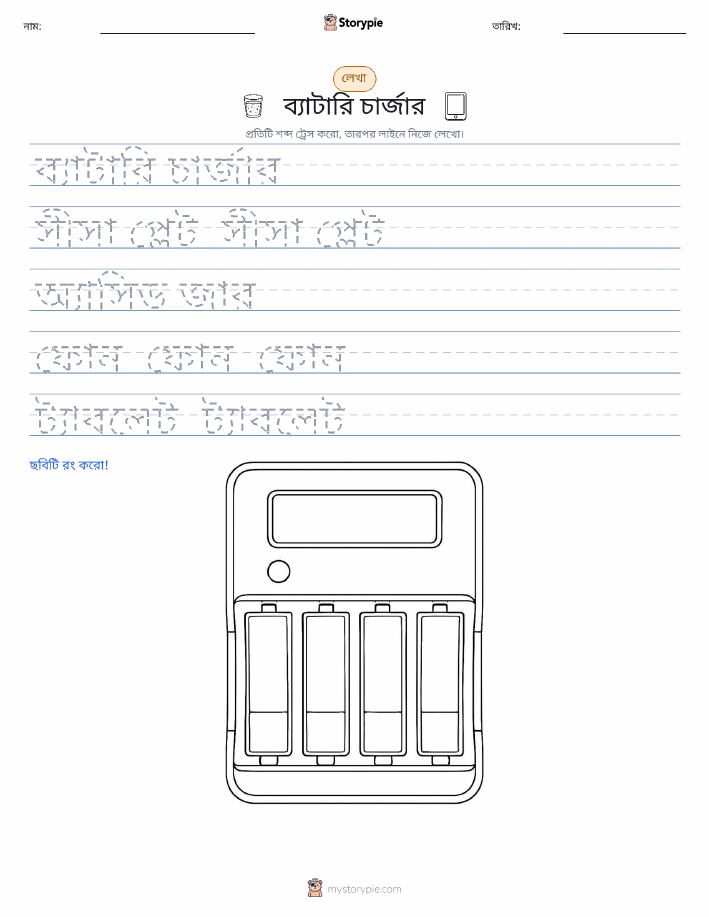 নাম:
Storypie
তারিখ:
লেখা
ব্যাটারি চার্জার
প্রতিটি শব্দ ট্রেস করো, তারপর লাইনে নিজে লেখো।
ব্যাটারি চার্জার
সীসা প্লেট সীসা প্লেট
অ্যাসিড জার
ফোন ফোন ফোন
ট্যাবলেট ট্যাবলেট
ছবিটি রং করো!
mystorypie.com